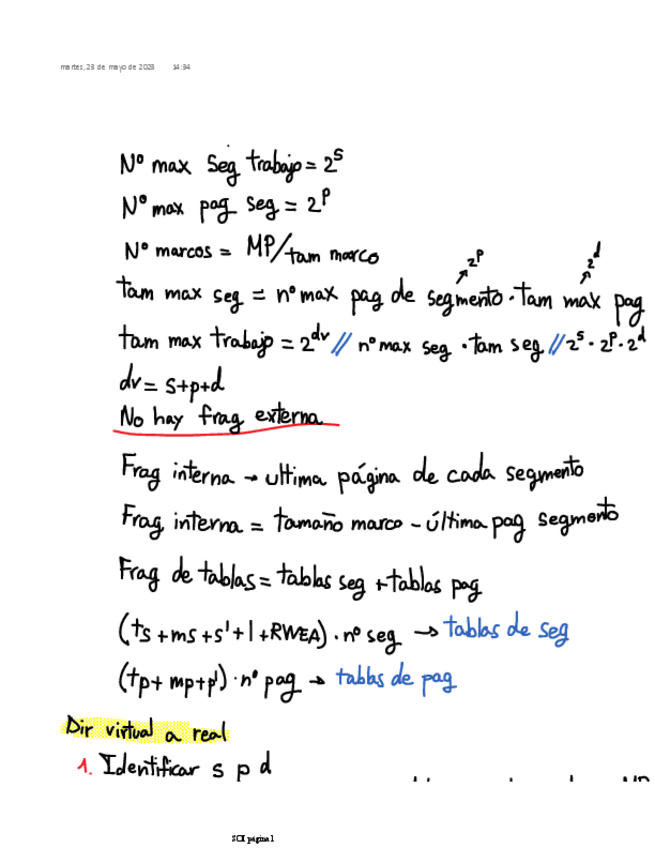 martes, 23 de mayo de 2023 14:34
Nº max Seg trabajo = 2^s
Nº max pag seg = 2^p
Nº marcos = MP/tam marco
tam max seg = nº max pag de segmento · tam max pag
↗ 2^p ↗ 2^d
tam max trabajo = 2^dv // nº max seg · tam seg // 2^s · 2^p · 2^d
dv = s+p+d
No hay frag externa
Frag interna → ultima página de cada segmento
Frag interna = tamaño marco - última pag segmento
Frag de tablas = tablas seg + tablas pag
(ts + ms + s' + l + RWEA) · nº seg → tablas de seg
(tp + mp + p') · nº pag → tablas de pag
Dir virtual a real
1. Identificar s p d
SOI página 1